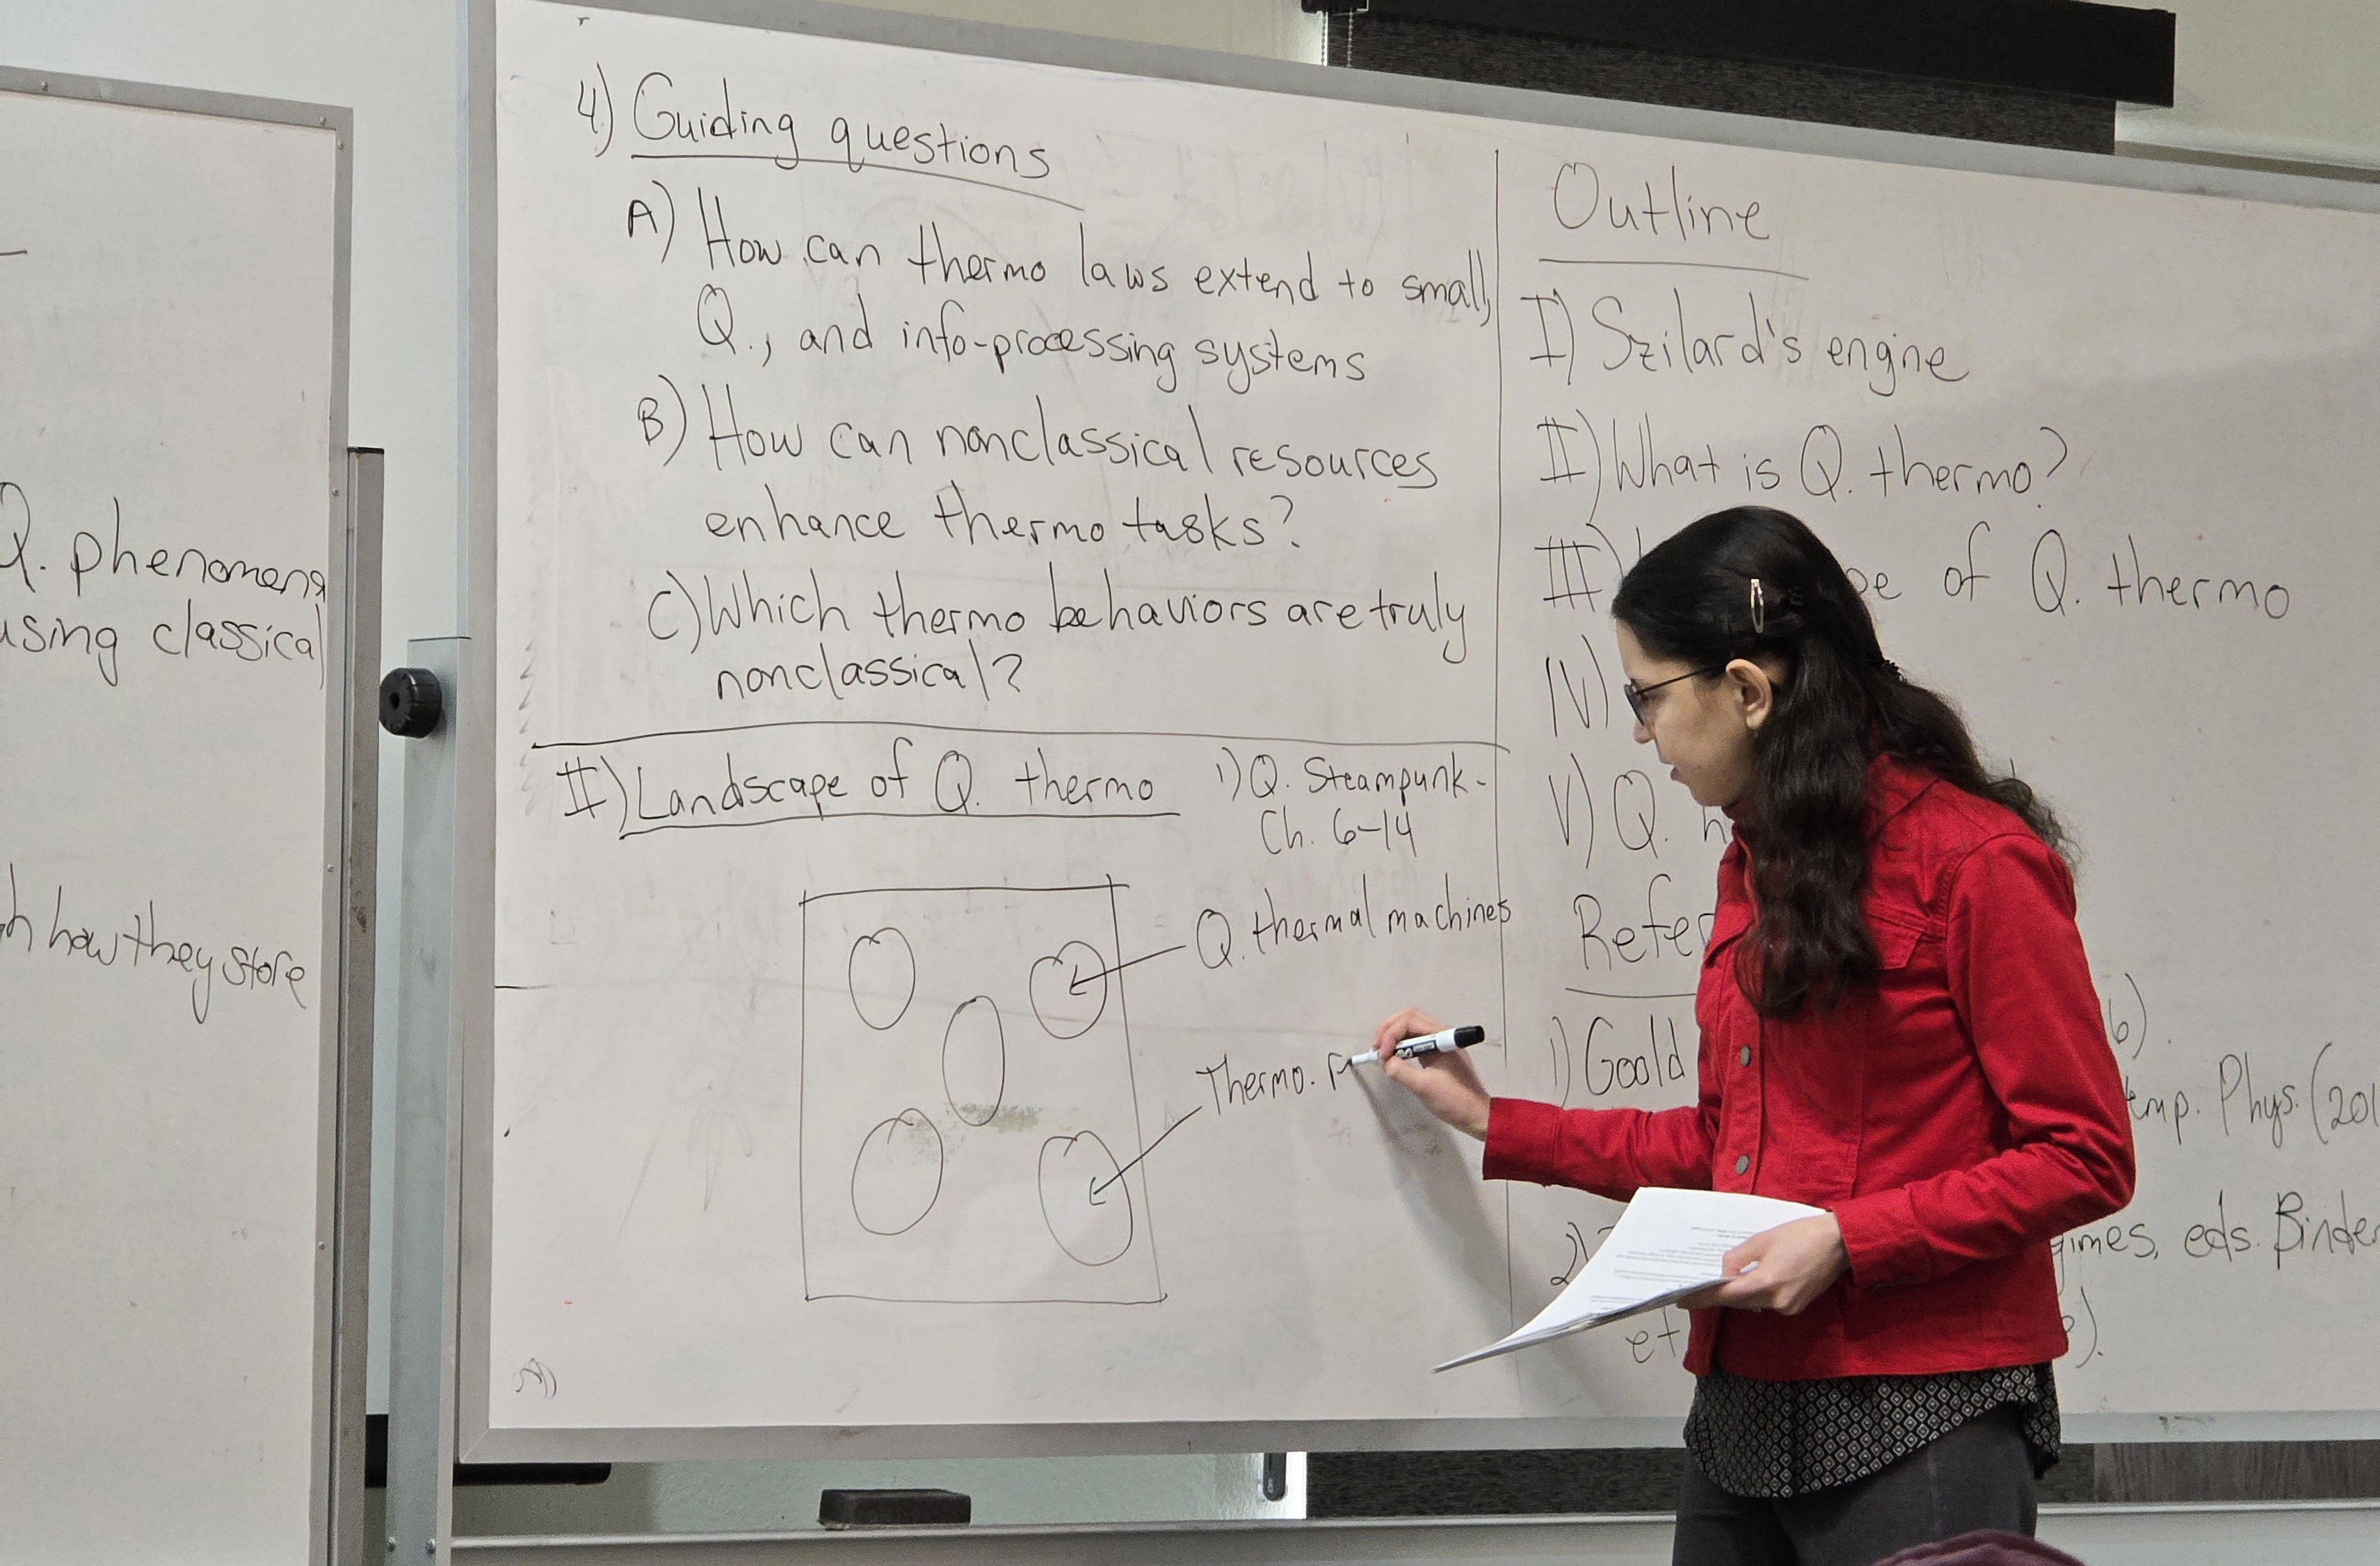 Q. phenomena
using classical
how they store
4) Guiding questions
A) How can thermo laws extend to small,
Q., and info-processing systems
B) How can nonclassical resources
enhance thermo tasks?
C) Which thermo behaviors are truly
nonclassical?
II) Landscape of Q. thermo
1) Q. Steampunk -
Ch. 6-14
Q. thermal machines
Thermo.
Outline
I) Szilard's engine
II) What is Q. thermo?
III) of Q. thermo
IV)
V) Q.
1) Goold
Phys. (201
2) eds. Binder
et